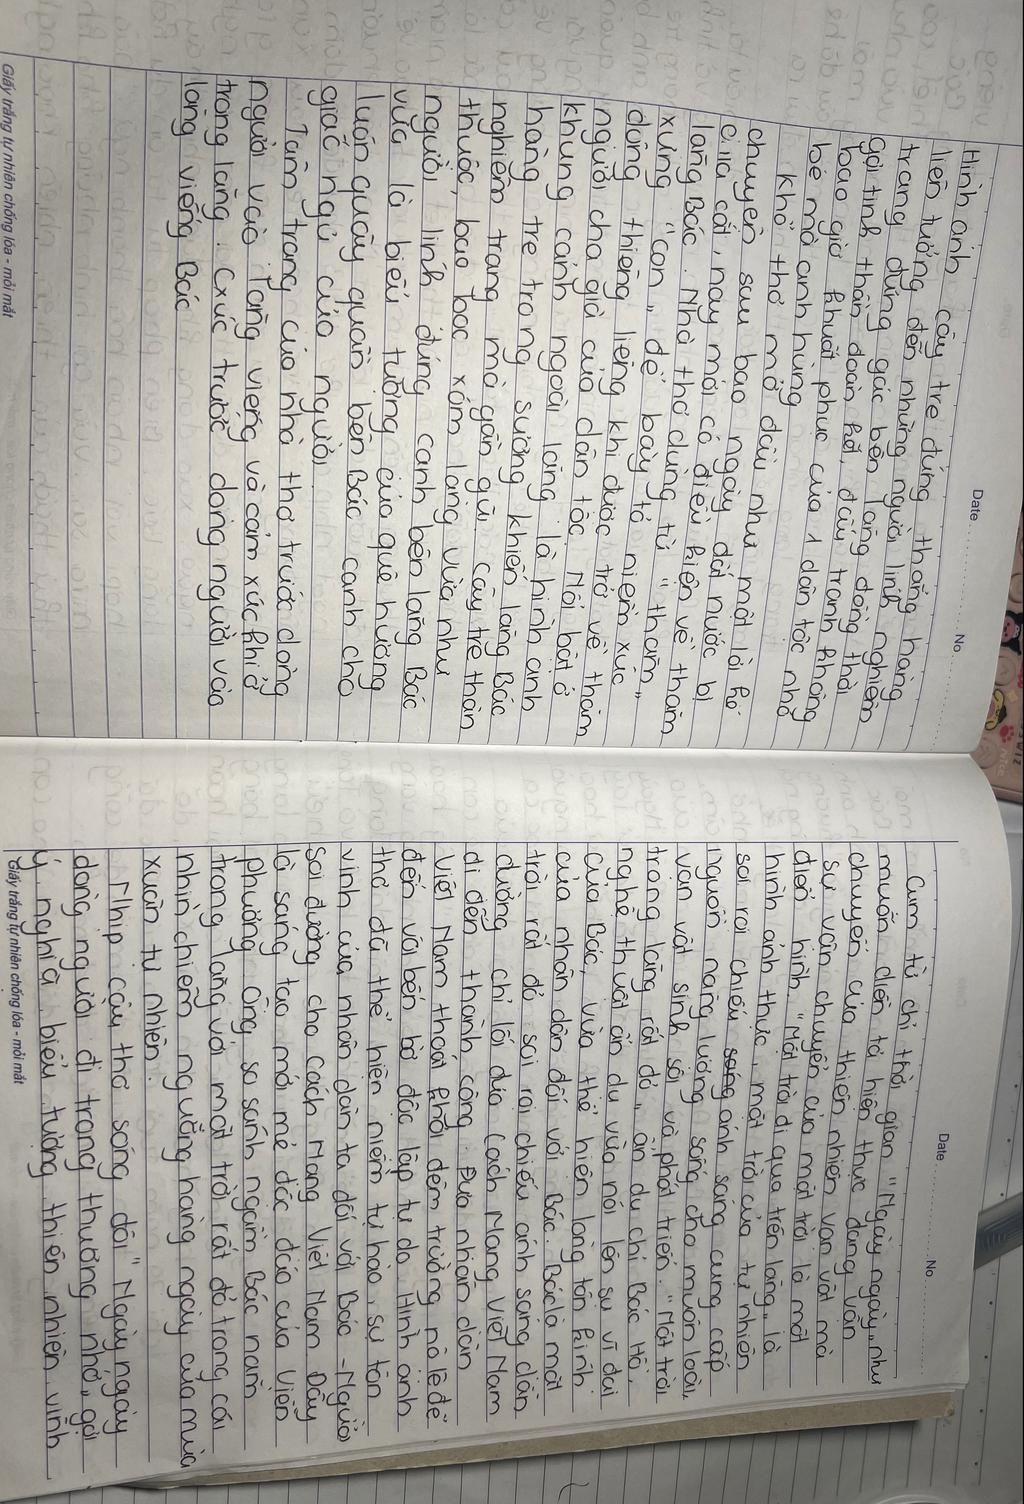 Date No.
Hình ảnh cây tre đứng thẳng hàng
liên tưởng đến những người lính nghiêm
trang đứng gác bên lăng đồng thời
gợi tinh thần đoàn kết, đấu tranh kháng
bao giờ khuất phục của 1 dân tộc nhỏ
bé mà anh hùng
Khổ thơ mở đầu như một lời kể
chuyện sau bao ngày đất nước bị
chia cắt, nay mới có điều kiện về thăm
lăng Bác. Nhà thơ dùng từ "thăm"
xưng "con" để bày tỏ niềm xúc
động thiêng liêng khi được trở về thăm
người cha già của dân tộc. Nổi bật ở
khung cảnh ngoài lăng là hình ảnh
hàng tre trong sương khiến lăng Bác
nghiêm trang mà gần gũi. Cây tre thân
thuộc, bao bọc xóm làng vừa như
người lính đứng canh bên lăng Bác
vừa là biểu tượng của quê hương
luôn quây quần bên Bác canh cho
giấc ngủ của người
Tâm trạng của nhà thơ trước dòng
người vào lăng viếng và cảm xúc khi ở
trong lăng. Cxúc trước dòng người vào
lăng viếng Bác
Giấy trắng tự nhiên chống lóa - mỏi mắt
Date No.
Cụm từ chỉ thời gian "Ngày ngày" như
muốn diễn tả hiện thực đang vận
chuyển của thiên nhiên vạn vật mà
sự vận chuyển của mặt trời là một
điển hình. "Mặt trời đi qua trên lăng" là
hình ảnh thực, mặt trời của tự nhiên
soi rọi chiếu sáng ánh sáng cung cấp
nguồn năng lượng sống cho muôn loài,
vạn vật sinh sôi và phát triển. "Mặt trời
trong lăng rất đỏ" ẩn dụ chỉ Bác Hồ,
nghệ thuật ẩn dụ vừa nói lên sự vĩ đại
của Bác, vừa thể hiện lòng tôn kính
của nhân dân đối với Bác. Bác là mặt
trời rất đỏ soi rọi chiếu ánh sáng dẫn
đường chỉ lối đưa Cách Mạng Việt Nam
đi đến thành công. Đưa nhân dân
Việt Nam thoát khỏi đêm trường nô lệ để
đến với bến bờ độc lập tự do. Hình ảnh
thơ đã thể hiện niềm tự hào, sự tôn
vinh của nhân dân ta đối với Bác - Người
soi đường cho Cách Mạng Việt Nam. Đây
là sáng tạo mới mẻ độc đáo của Viễn
Phương. Ông so sánh ngầm Bác nằm
trong lăng với mặt trời rất đỏ trong cái
nhìn chiêm ngưỡng hàng ngày của mùa
xuân tự nhiên.
Nhịp câu thơ sóng đôi "Ngày ngày
dòng người đi trong thương nhớ" gợi
ý nghĩa biểu tượng thiên nhiên vĩnh
Giấy trắng tự nhiên chống lóa - mỏi mắt